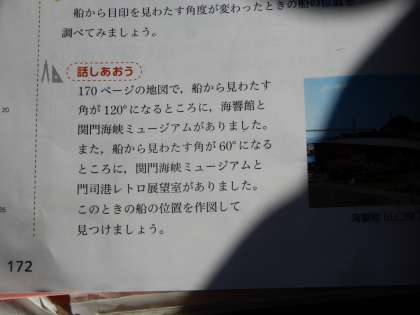 船から目印を見わたす角度が変わったときの船の位置を
調べてみましょう。
話しあおう
170 ページの地図で，船から見わたす
角が 120°になるところに，海響館と
関門海峡ミュージアムがありました。
また，船から見わたす角が 60°になる
ところに，関門海峡ミュージアムと
門司港レトロ展望室がありました。
このときの船の位置を作図して
見つけましょう。
20
172